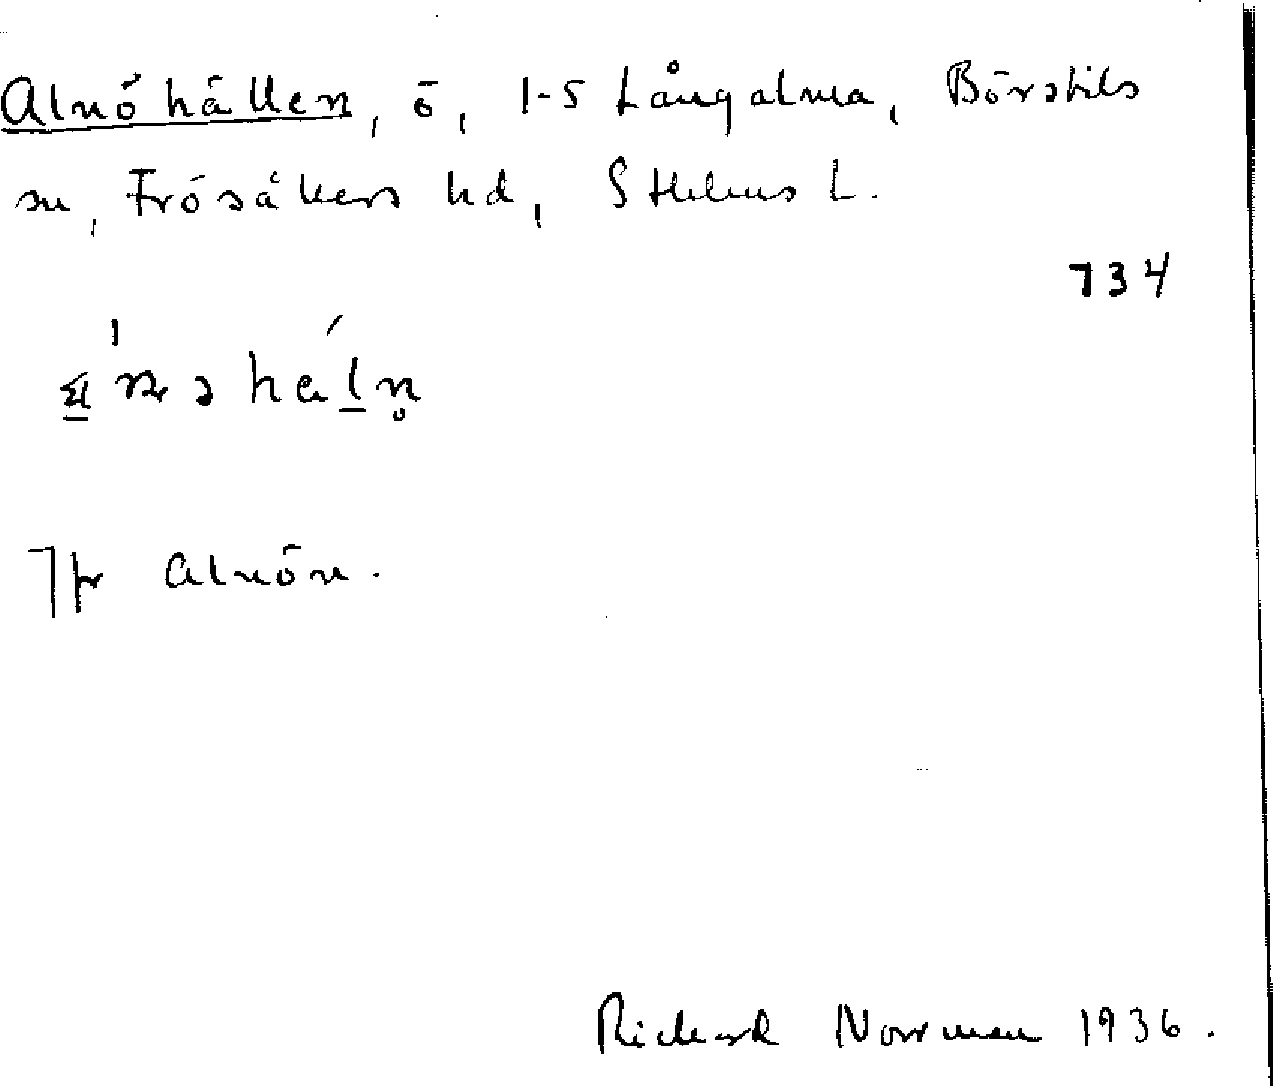 Alnöhällen, ö, 1-5 Långalma, Börstils
sn, Frösåkers hd, Sthlms L.
734
Jfr Alnön.
Richard Norrman 1936.